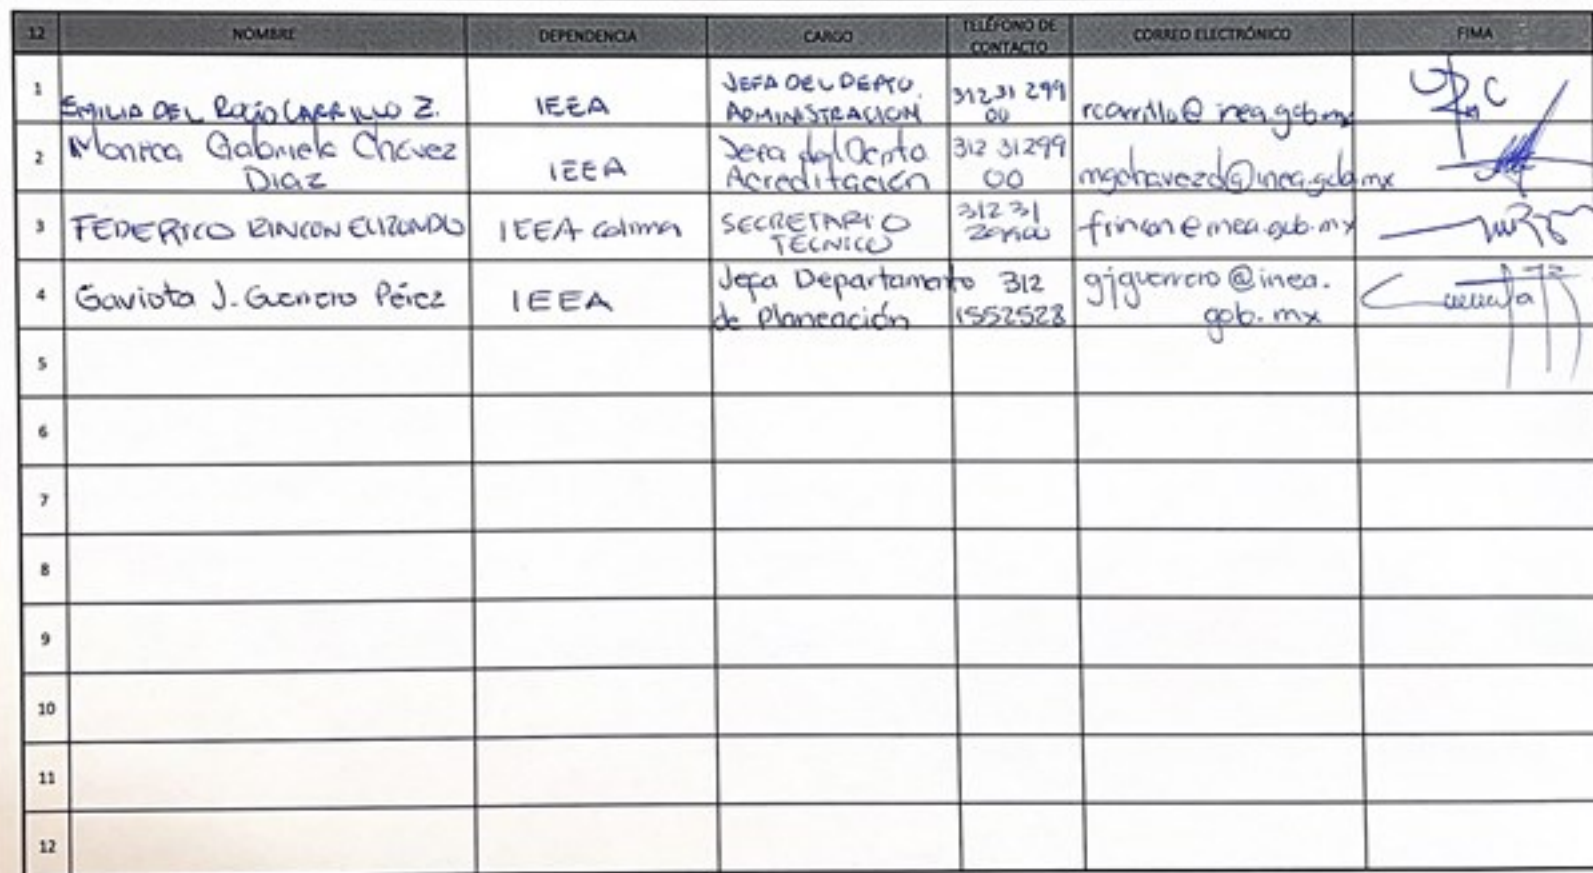 12 NOMBRE DEPENDENCIA CARGO TELÉFONO DE CONTACTO CORREO ELECTRÓNICO FIMA
1 EMILIA DEL ROCÍO CARRILLO Z. IEEA JEFA DEL DEPTO. ADMINISTRACION 312 31 299 00 rcarrillo@inea.gob.mx
2 Monica Gabriela Chávez Diaz IEEA Jefa del Depto Acreditación 312 31299 00 mgchavezd@inea.gob.mx
3 FEDERICO RINCON ELIZONDO IEEA Colima SECRETARIO TECNICO 312 31 frincon@inea.gob.mx
4 Gaviota J. Guerrero Pérez IEEA Jefa Departamento de Planeación 312 1552528 gjguerrero@inea.gob.mx
5
6
7
8
9
10
11
12